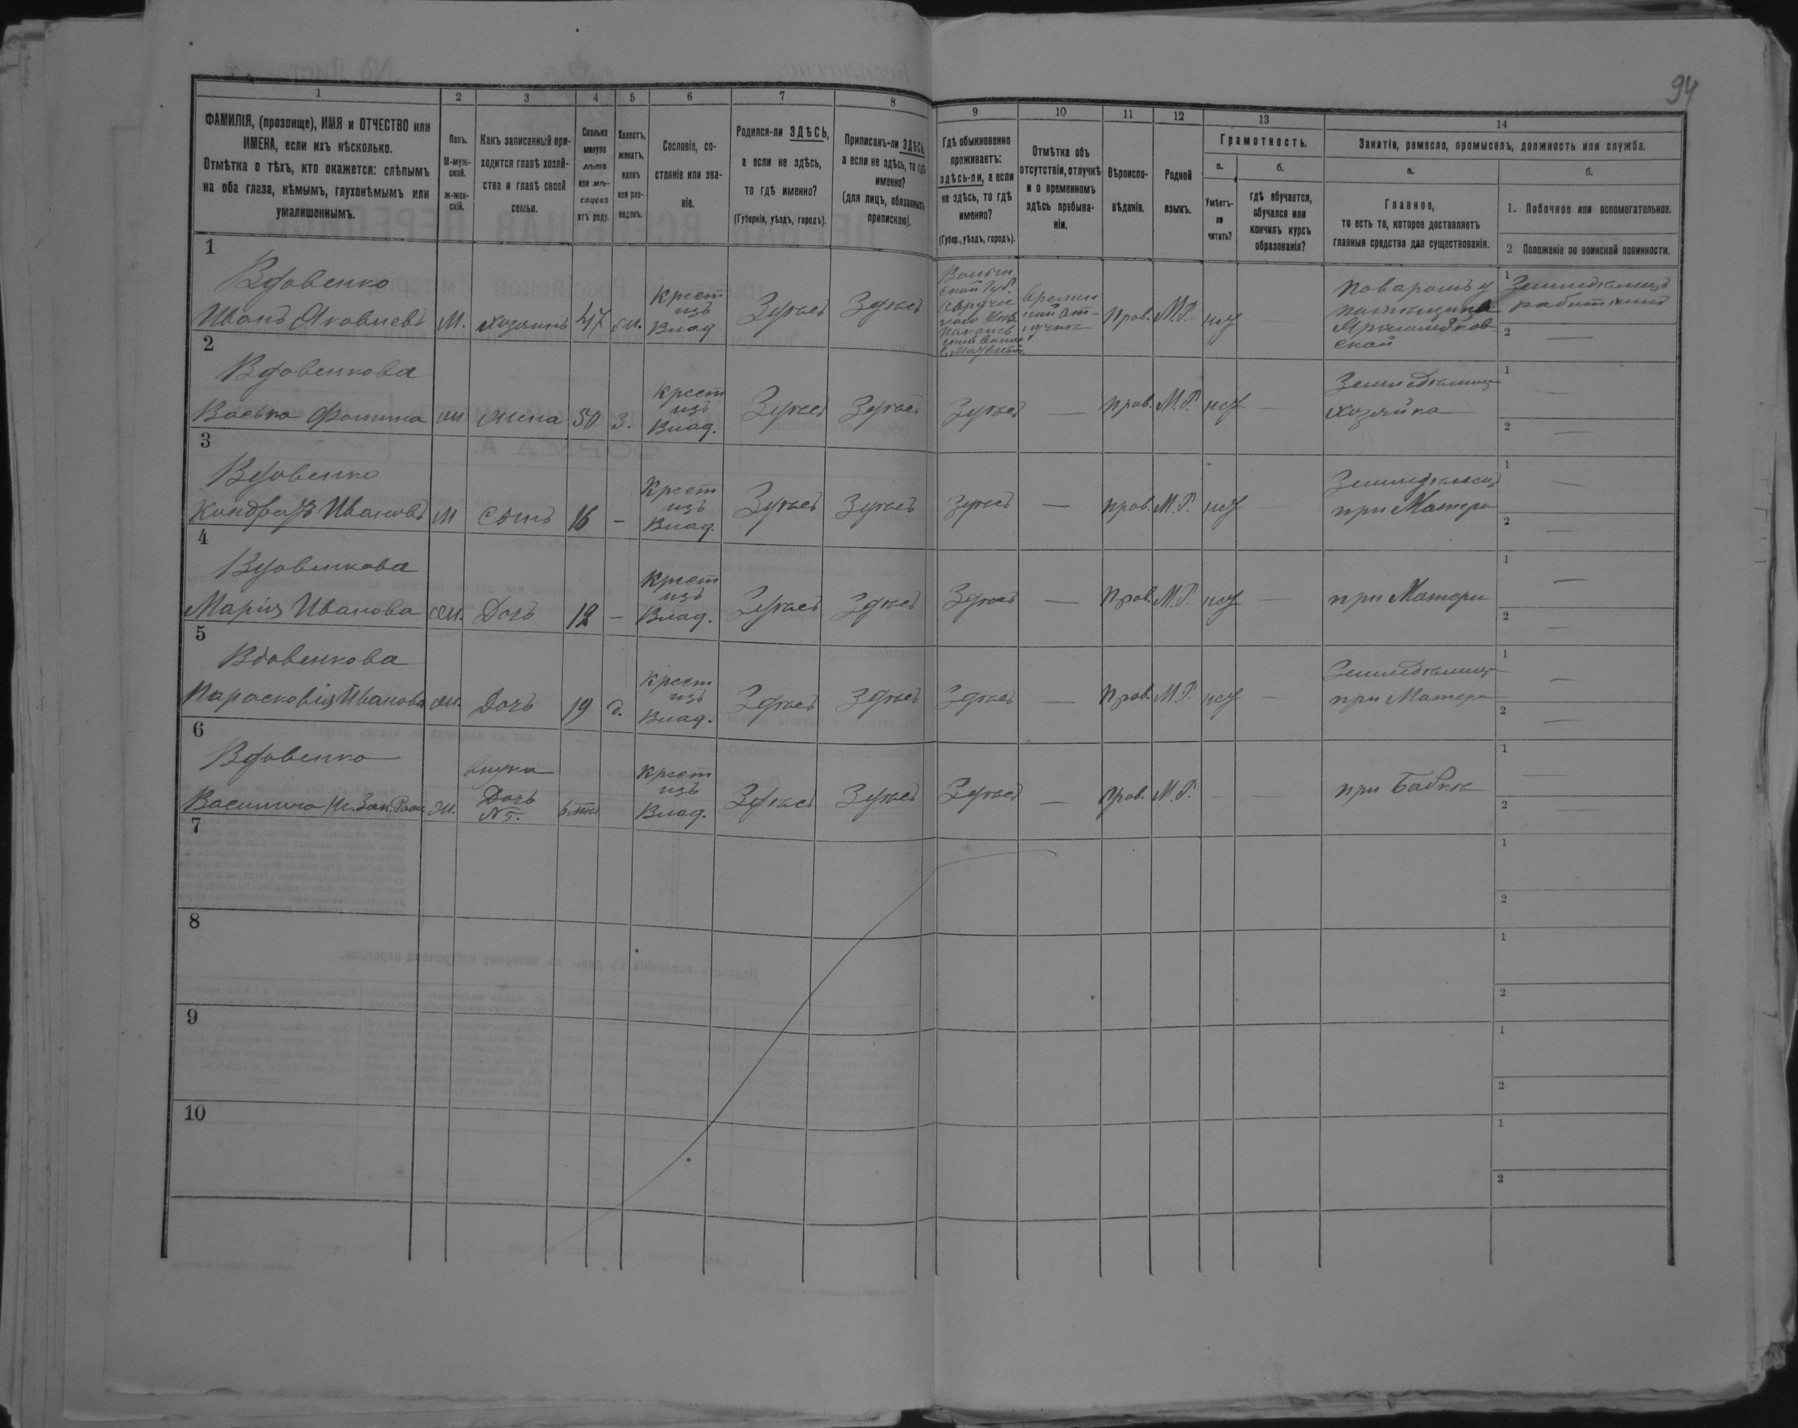 94
1 2 3 4 5 6 7 8 9 10 11 12 13 14
ФАМИЛІЯ, (прозвище), ИМЯ и ОТЧЕСТВО или
ИМЕНА, если ихъ нѣсколько.
Отмѣтка о тѣхъ, кто окажется: слѣпымъ
на оба глаза, нѣмымъ, глухонѣмымъ или
умалишеннымъ.
Полъ.
М-муж-
ской.
ж-жен-
скій.
Какъ записанный при-
ходится главѣ хозяй-
ства и главѣ своей
семьи.
Сколько
минуло
лѣтъ
или мѣ-
сяцевъ
отъ роду.
Холостъ,
женатъ,
вдовъ
или раз-
веденъ.
Сословіе, со-
стояніе или зва-
ніе.
Родился-ли ЗДѢСЬ,
а если не здѣсь,
то гдѣ именно?
(Губернія, уѣздъ, городъ).
Приписанъ-ли ЗДѢСЬ,
а если не здѣсь, то гдѣ
именно?
(для лицъ, обязанныхъ
припискою).
Гдѣ обыкновенно
проживаетъ:
здѣсь-ли, а если
не здѣсь, то гдѣ
именно?
(Губер., уѣздъ, городъ).
Отмѣтка объ
отсутствіи, отлучкѣ
и о временномъ
здѣсь пребыва-
ніи.
Вѣроиспо-
вѣданіе.
Родной
языкъ.
Грамотность.
а.
Умѣетъ-
ли
читать?
б.
гдѣ обучается,
обучался или
кончилъ курсъ
образованія?
Занятіе, ремесло, промыселъ, должность или служба.
а.
Главное,
то есть то, которое доставляетъ
главныя средства для существованія.
б.
1. Побочное или вспомогательное.
2 Положеніе по воинской повинности.
1
Вдовенко
Иванъ Яковлевъ М. хозяинъ 47
Крест
изъ
Влад
Здѣсь Здѣсь
Пров. М.Р.
Поваромъ у
помѣщика
ской
1 Земледѣлецъ
2 —
2
Вдовенкова
Васька Фомина ж жена 50 З.
Крест
изъ
Влад.
Здѣсь Здѣсь Здѣсь — Пров. М.Р. —
хозяйка
1 —
2 —
3
Вдовенко
Кондратъ Ивановъ М Сынъ 16 —
Крест
изъ
Влад.
Здѣсь Здѣсь Здѣсь — Пров. М.Р. —
Земледѣлецъ
при Матери
1 —
2 —
4
Вдовенкова
Марія Иванова ж. Дочь 12 —
Крест
изъ
Влад.
Здѣсь Здѣсь Здѣсь — Пров. М.Р. —
при Матери
1 —
2 —
5
Вдовенкова
Парасковія Иванова ж. Дочь 19 д.
Крест
изъ
Влад.
Здѣсь Здѣсь Здѣсь — Пров. М.Р. —
при Матери
1 —
2 —
6
Вдовенко
ж.
внучка
Дочь
№5.
Крест
изъ
Влад.
Здѣсь Здѣсь Здѣсь — Пров. М.Р. — —
при Бабкѣ
1 —
2 —
7
1
2
8
1
2
9
1
2
10
1
2